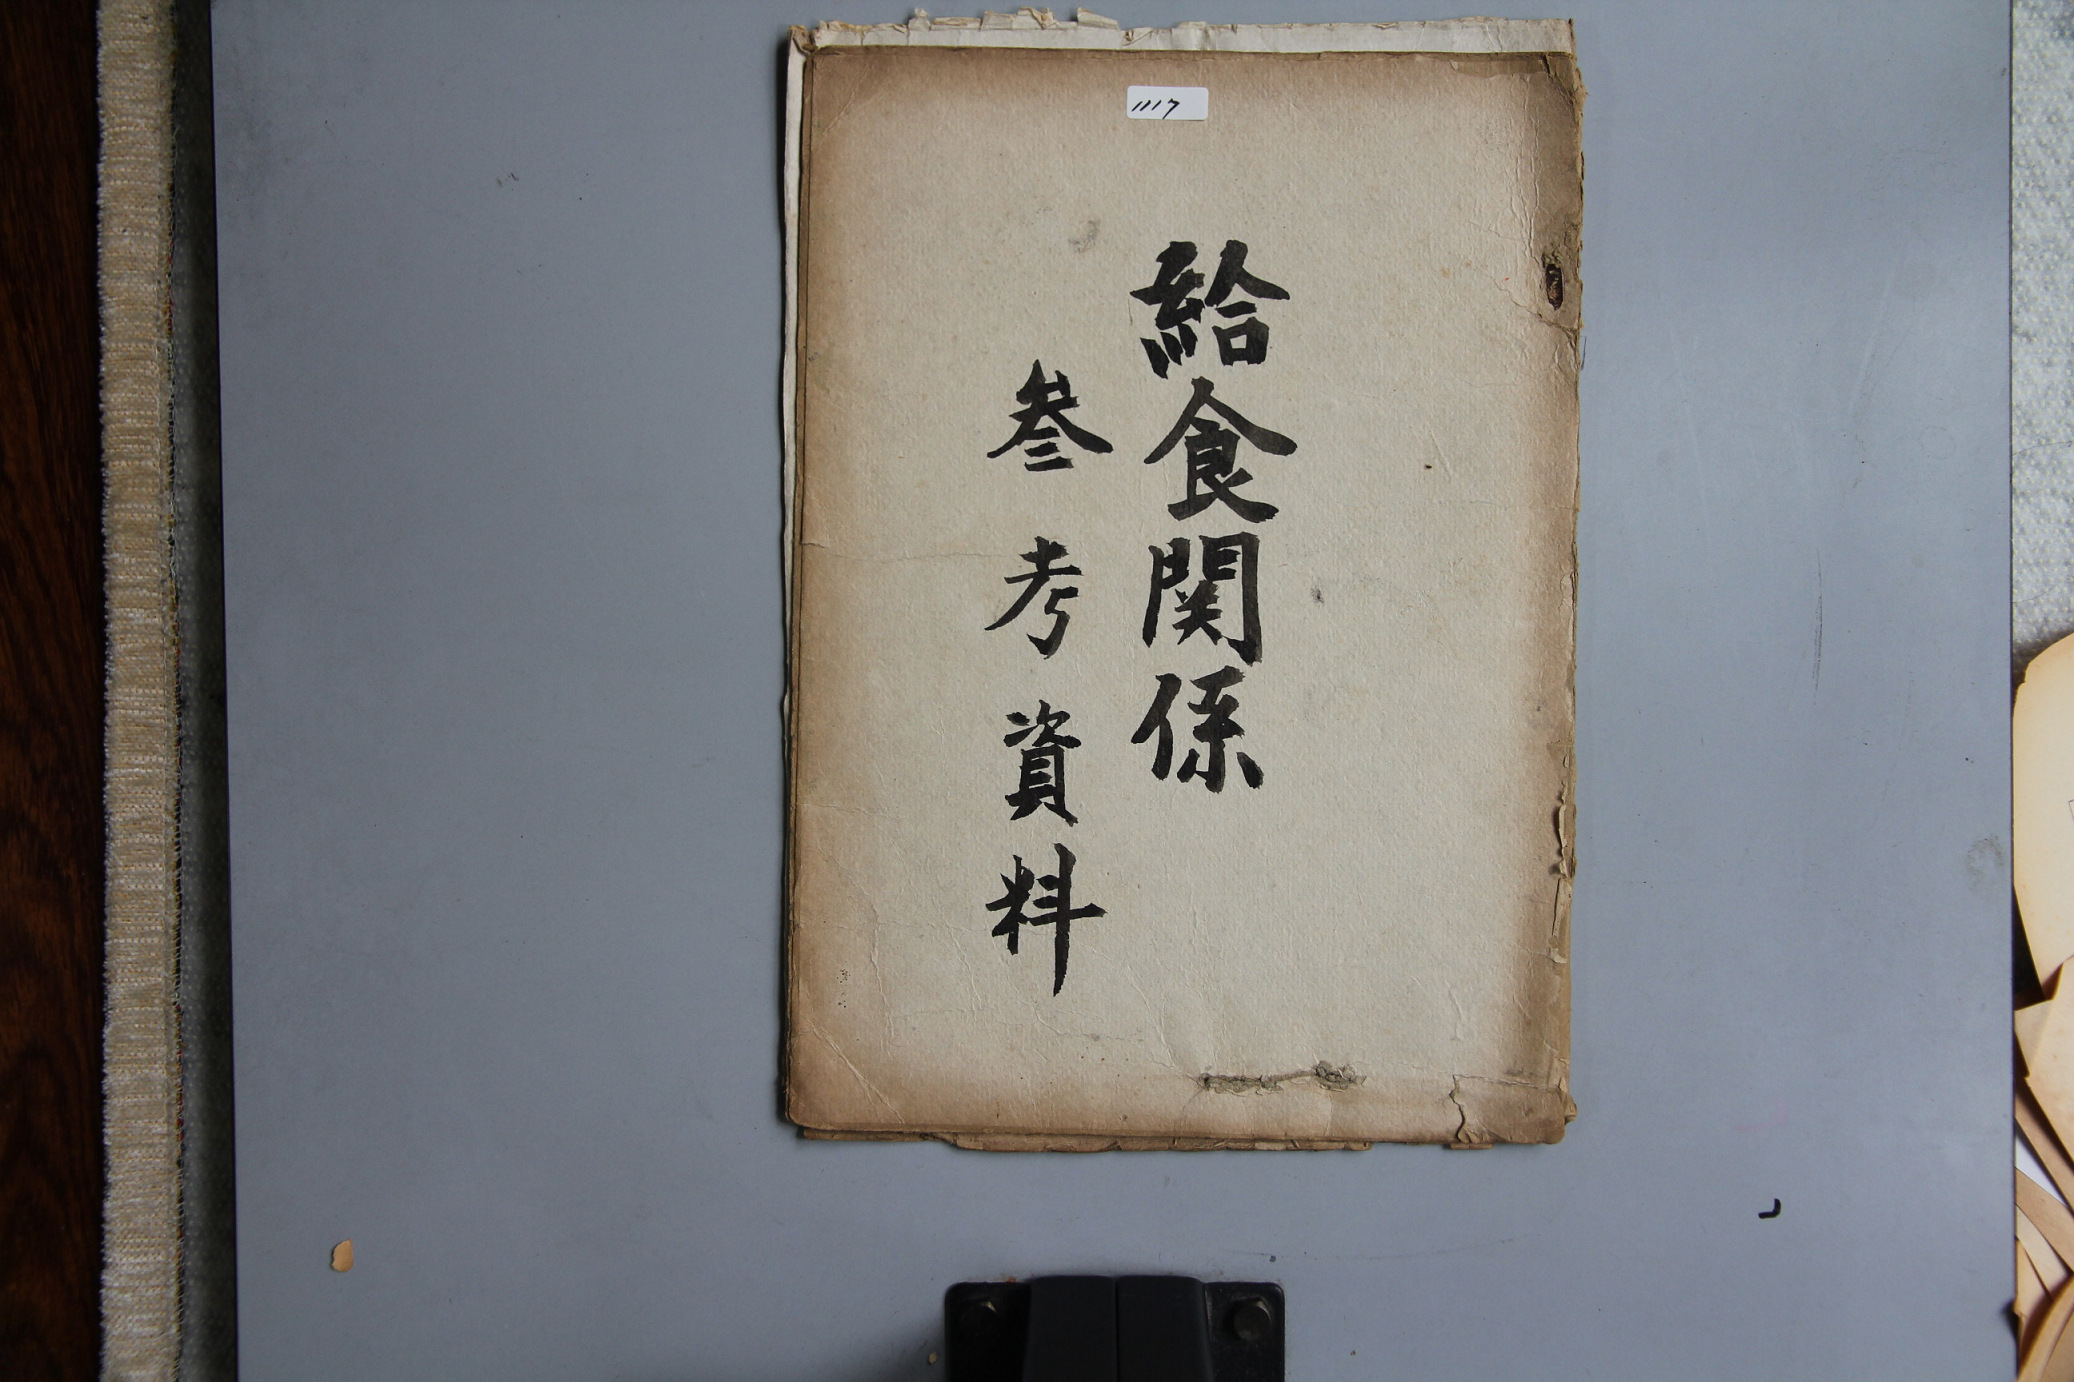 1117
給食関係
叁考資料